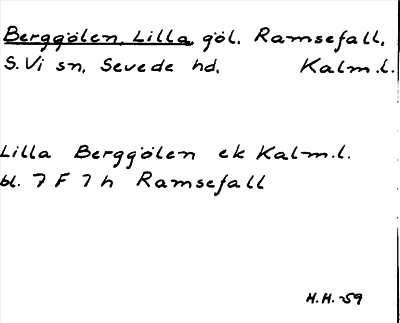 Berggölen, Lilla, göl. Ramsefall,
S. Vi sn, Sevede hd, Kalm.l.
Lilla Berggölen ek Kalm.l.
bl. 7 F 7 h Ramsefall
H.H. -59